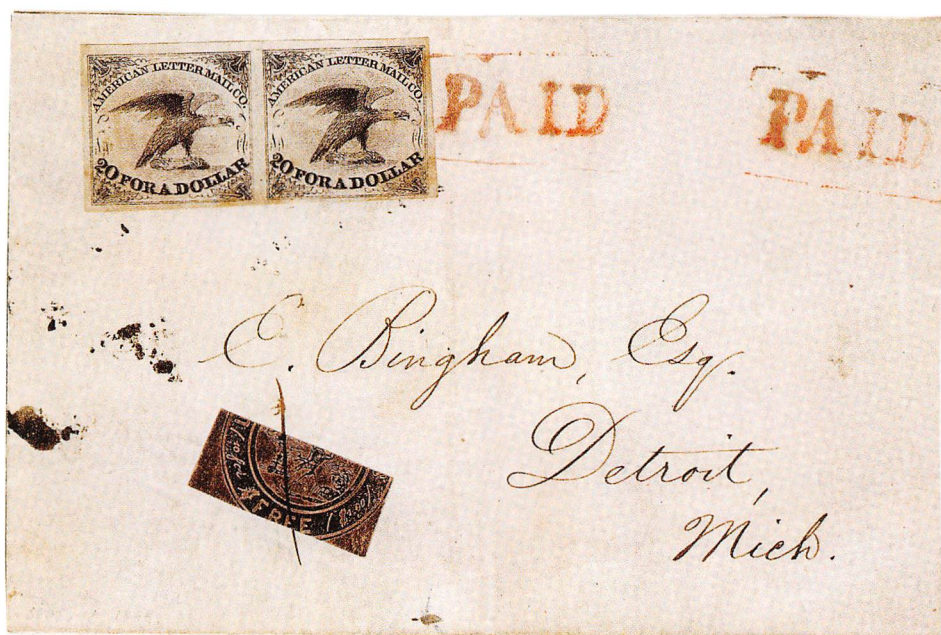 AMERICAN LETTER MAIL CO.
20 FOR A DOLLAR
AMERICAN LETTER MAIL CO.
20 FOR A DOLLAR
PAID
PAID
E. Bingham, Esq.
Detroit,
Mich.
FREE